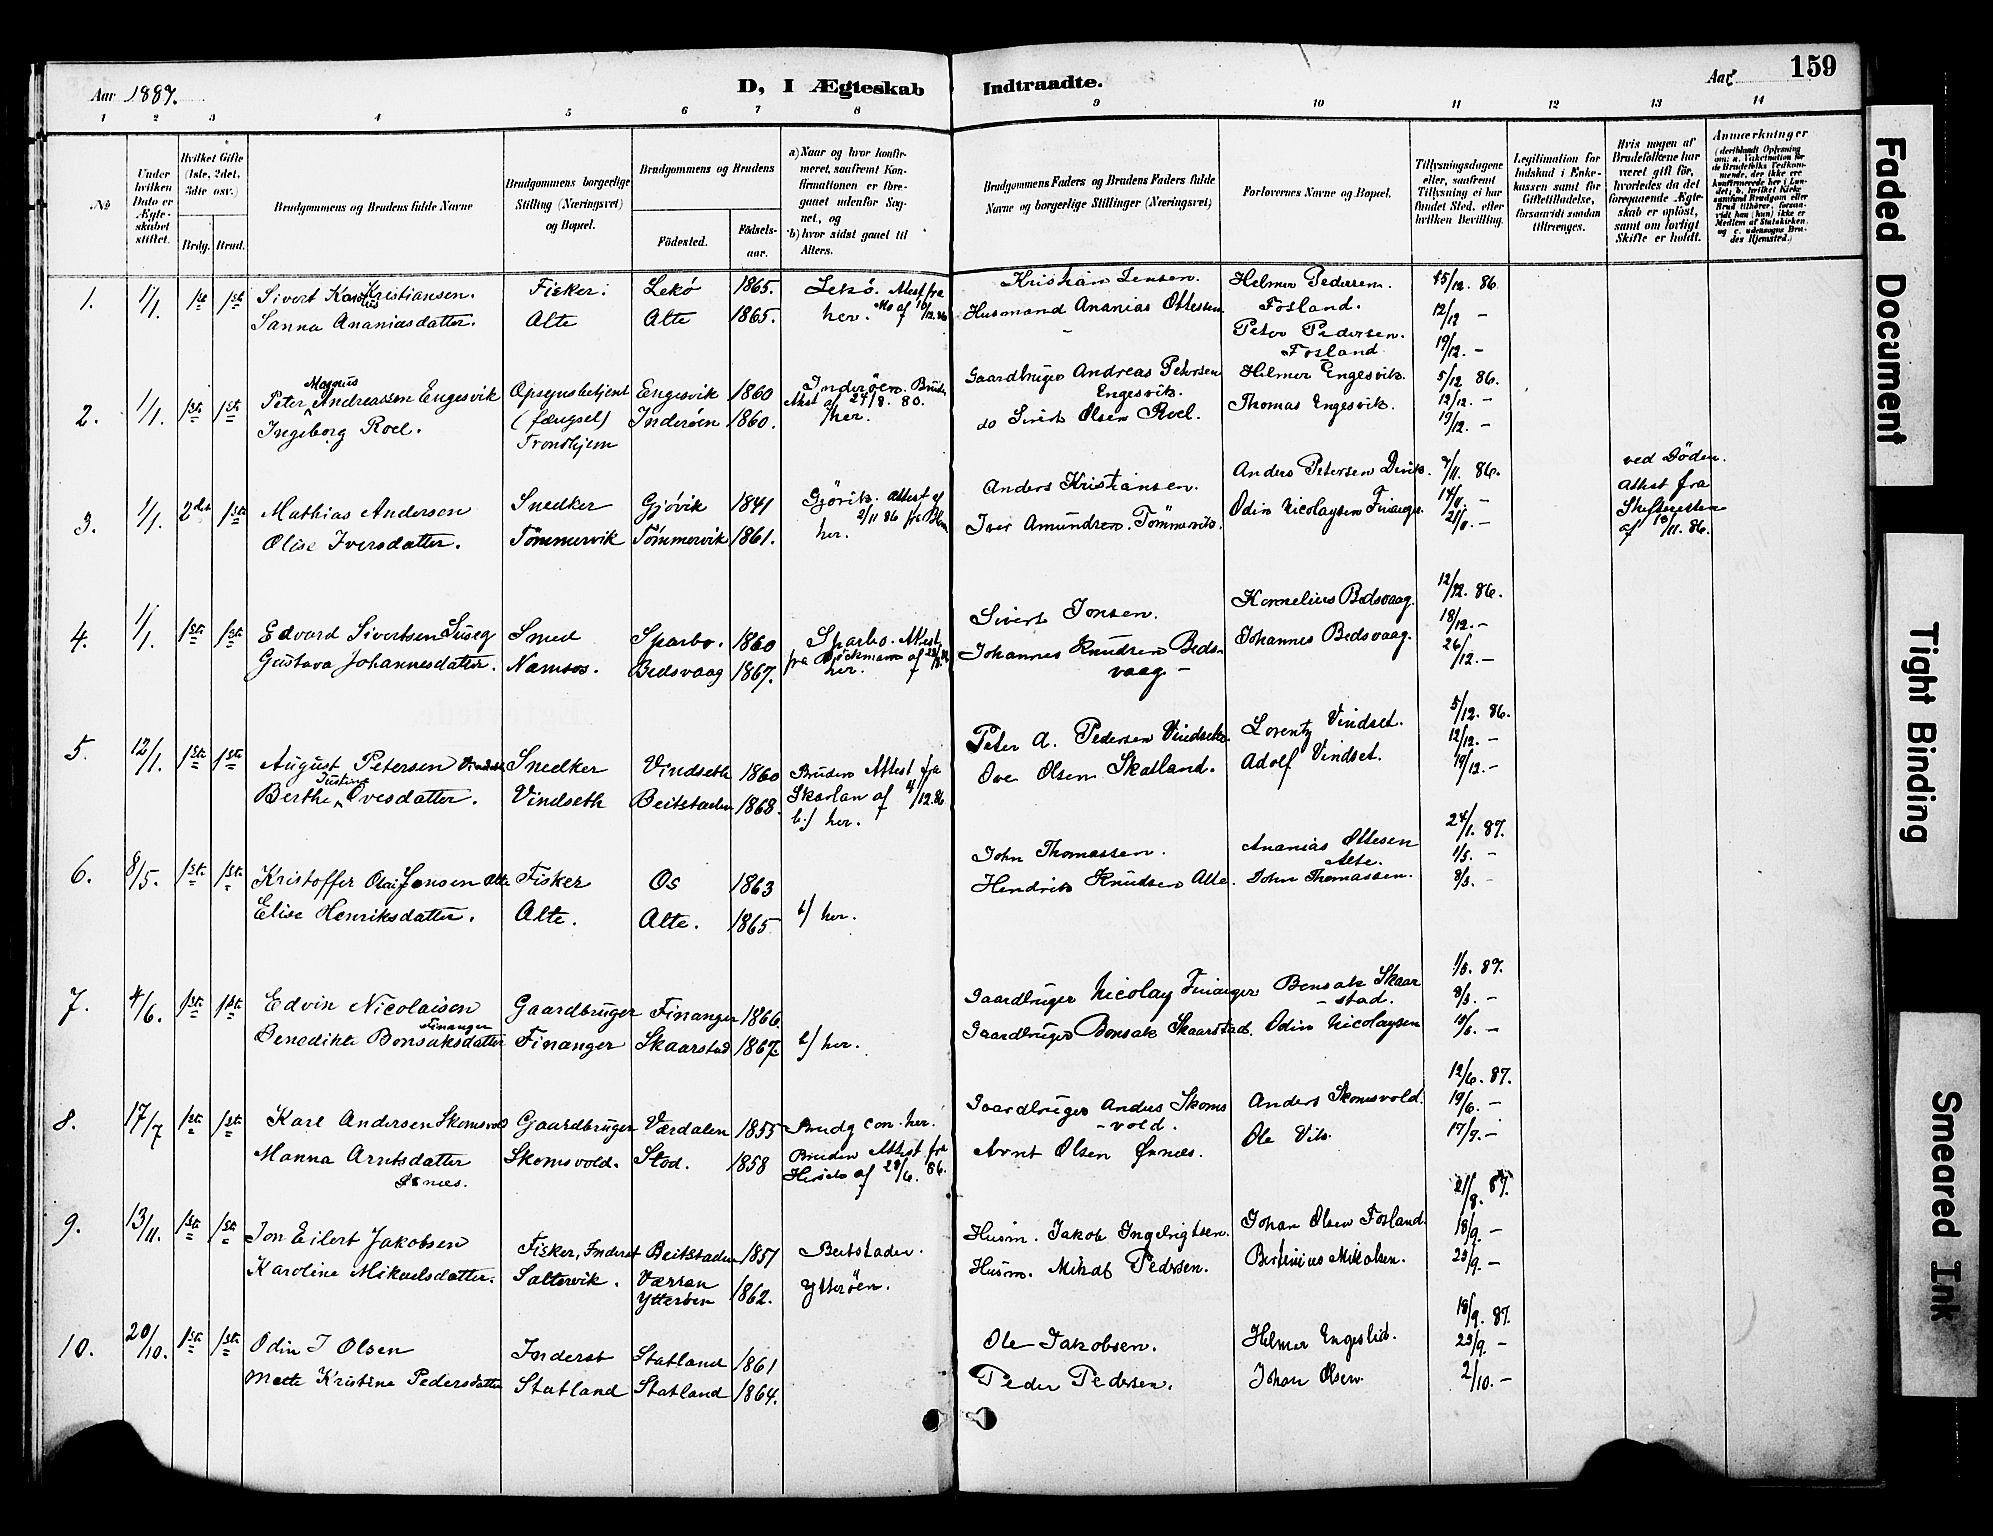 Aar 1887.
D, I Ægteskab Indtraadte.
Aar 159
1 2 3 4 5 6 7 8 9 10 11 12 13 14
No
Under hvilken Dato er Ægteskabet stiftet.
Hvilket Gifte (1ste, 2det, 3die osv.)
Brdg. Brud.
Brudgommens og Brudens fulde Navne
Brudgommens borgerlige Stilling (Næringsvei) og Bopæl.
Brudgommens og Brudens
Fødested. Fødselsaar.
a) Naar og hvor konfirmeret, saafremt Konfirmationen er foregaaet udenfor Sognet, og
b) hvor sidst gaaet til Alters.
Brudgommens Faders og Brudens Faders fulde Navne og borgerlige Stillinger (Næringsvei)
Forlovernes Navne og Bopæl.
Tillysningsdagene eller, saafremt Tillysning ei har fundet Sted, efter hvilken Bevilling.
Legitimation for Indskud i Enkekassen samt for Giftetilladelse, forsaavidt saadan tiltrænges.
Hvis nogen af Brudefolkene har været gift før, hvorledes da det foregaaende Ægteskab er opløst, samt om lovligt Skifte er holdt.
Anmærkninger
1. 1/1. 1ste 1ste Sivert Kristiansen. Fisker. Lekø 1865. Lekø. Attest fra Kristian Jensen. Helmer Pedersen 86.
Sanna Ananiasdatter. Alte Alte 1865. her. Husmand Ananias Ottesen Fosland. 12/12 –
Peter Pedersen. 19/12. –
Fosland
2. 1/1. 1ste 1ste Peter Magnus Andreassen Engesvik Opsynsbetjent Engesvik 1860 Inderøen. Gaardbruger Andreas Petersen Engesvik. Helmer Engesvik. 5/12 86.
Ingeborg Roel. (fængsel) Inderøen 1860. her. do Sivert Olsen Roel. Thomas Engesvik. 12/12. –
Trondhjem 19/12. –
3. 1/1. 2det 1ste Mathias Andersen Snedker Gjøvik 1841 Gjøvik. Attest af 2/11 86 Anders Kristiansen. Anders Petersen 7/11. 86. ved Døden.
Olise Iversdatter. Tømmervik Tømmervik 1861. her. Iver Amundsen. Tømmervik. Odin Nicolaysen Finanger 14/11. – Attest fra
21/11. – Skifteretten
af 86.
4. 1/1. 1ste 1ste Edvard Sivertsen Smed Sparbo. 1860 Sparbo. Attest Sivert Jonsen. Kornelius Bedsvaag. 12/12. 86.
Gustava Johannesdatter. Namsos. Bedsvaag 1867. her. Johannes Knudsen Bedsvaag – Johannes Bedsvaag. 18/12. –
26/12. –
5. 12/1. 1ste 1ste August Petersen Snedker Vindseth 1860 Bruden Attest fra Peter A. Pedersen Vindseth. Lorentz Vindset. 5/12. 86.
Berthe Justine Ovesdatter. Vindseth Beitstaden 1868. Skarlan af 4/12.86 Ove Olsen Skatland. Adolf Vindset. 12/12. –
b.) her. 19/12. –
6. 8/5. 1ste 1ste Kristoffer Olai Jensen Alte Fisker Os 1863 John Thomassen. Ananias Ottesen Alte. 87.
Elise Henriksdatter. Alte. Alte. 1865 b) her. Hendrik Knudsen Alte. John Thomassen. 1/5. –
8/5. –
7. 4/6. 1ste 1ste Edvin Nicolaisen Finanger Gaardbruger Finanger 1866. Gaardbruger Nicolay Finanger Bensak Skaarstad. 1/5. 87.
Benedikte Bonsaksdatter Finanger Skaarstad 1867. b) her. Gaardbruger Bonsak Skaarstad. Odin Nicolaysen 8/5. –
8. 17/7 1ste 1ste Karl Andersen Skomsvold Gaardbruger Værdalen 1855 Brudg con. her. Gaardbruger Anders Skomsvold. Anders Skomsvold. 12/6. 87.
Manna Arntsdatter Skomsvold. Stod. 1858 Bruden Attest fra Arnt Olsen Ørnæs. Ole Vik. 19/6. –
af 86. 17/7. –
9. 13/11. 1ste 1ste Jon Eilert Jakobsen Fisker, Inderst Beitstaden 1857 Beitstaden. Husm. Jakob Ingebrigtsen. Johan Olsen Fosland. 87.
Karoline Mikaelsdatter. Saltervik. Værran Ytterøen 1862. Ytterøen. Husm. Mikal Pedersen. Bertinius Mikalsen. 18/9. –
25/9. –
10. 20/10. 1ste 1ste Odin J Olsen Inderst Statland 1861 Ole Jakobsen. Helmer Engeslid. 18/9. 87.
Mette Kristine Pedersdatter Statland Statland 1864. Peder Pedersen. Johan Olsen 25/9. –
2/10. –
Faded Document
Tight Binding
Smeared Ink